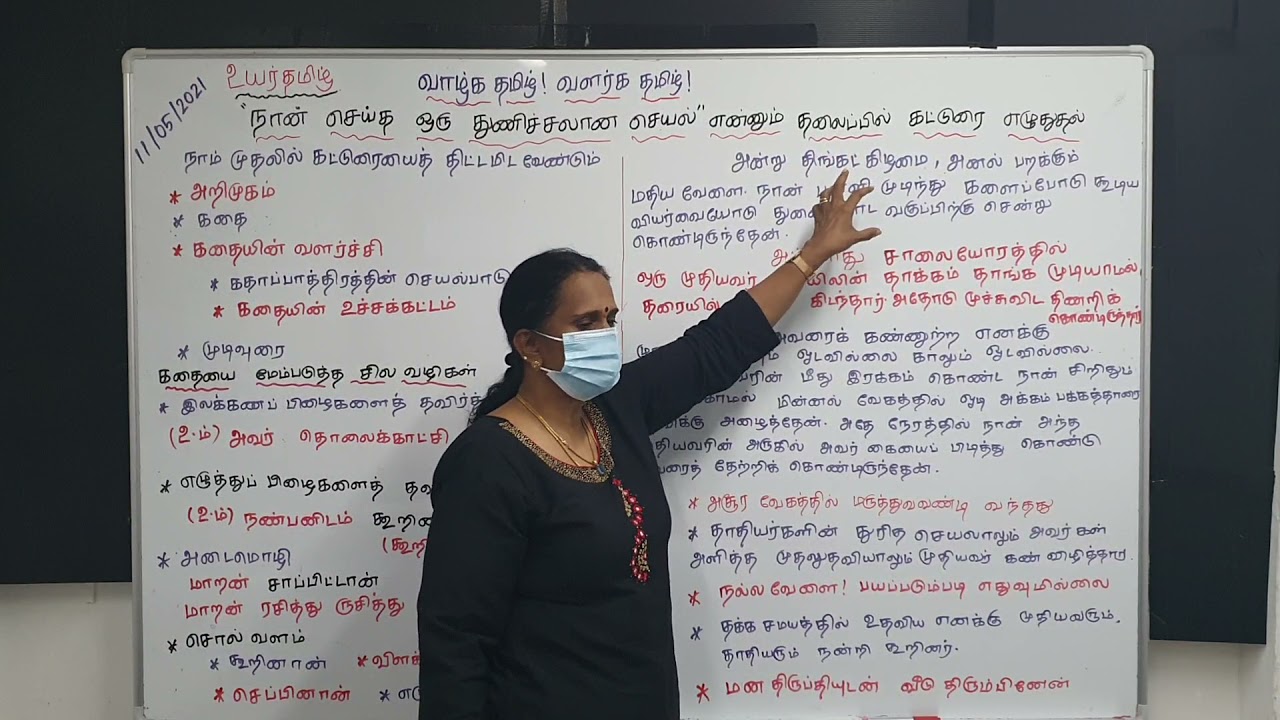 11/05/2021
உயர்தமிழ்
வாழ்க தமிழ்! வளர்க தமிழ்!
"நான் செய்த ஒரு துணிச்சலான செயல்" என்னும் தலைப்பில் கட்டுரை எழுதுதல்
நாம் முதலில் கட்டுரையைத் திட்டமிட வேண்டும்
* அறிமுகம்
* கதை
* கதையின் வளர்ச்சி
* கதாப்பாத்திரத்தின் செயல்பாடு
* கதையின் உச்சக்கட்டம்
* முடிவுரை
கதையை மேம்படுத்த சில வழிகள்
* இலக்கணப் பிழைகளைத்
(உ.ம்) அவர் தொலைக்காட்சி
* எழுத்துப் பிழைகளைத்
(உ.ம்) நண்பனிடம்
* அடைமொழி
மாறன் சாப்பிட்டான்
மாறன் ரசித்து ருசித்து
* சொல் வளம்
* கூறினான் *
* செப்பினான் *
அன்று திங்கட் கிழமை, அனல் பறக்கும்
மதிய வேளை. நான் முடிந்து களைப்போடு கூடிய
வியர்வையோடு வகுப்பிற்கு சென்று
கொண்டிருந்தேன்.
சாலையோரத்தில்
ஒரு முதியவர் தாக்கம் தாங்க முடியாமல்,
தரையில் கிடந்தார் அதோடு மூச்சுவிட திணறிக்
கொண்டிருந்தார்
கண்ணுற்ற எனக்கு
ஓடவில்லை காலும் ஓடவில்லை.
மீது இரக்கம் கொண்ட நான் சிறிதும்
மின்னல் வேகத்தில் ஓடி அக்கம் பக்கத்தாரை
அழைத்தேன். அதே நேரத்தில் நான் அந்த
அருகில் அவர் கையைப் பிடித்து கொண்டு
தேற்றிக் கொண்டிருந்தேன்.
* அசூர வேகத்தில் மருத்துவவண்டி வந்தது
* தாதியர்களின் துரித செயலாலும் அவர்கள்
அளித்த முதலுதவியாலும் முதியவர் கண் விழித்தார்.
* நல்ல வேளை! பயப்படும்படி எதுவுமில்லை
* தக்க சமயத்தில் உதவிய எனக்கு முதியவரும்,
தாதியரும் நன்றி கூறினர்.
* மன திருப்தியுடன் வீடு திரும்பினேன்